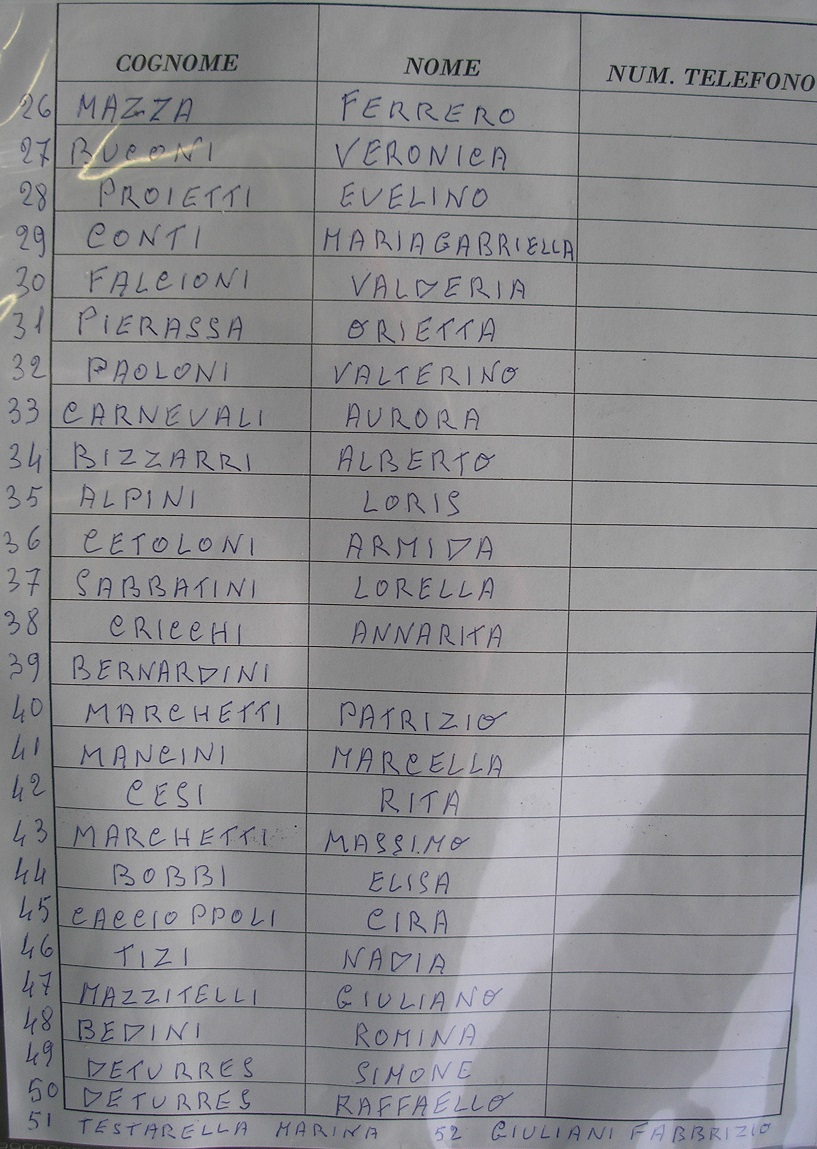 COGNOME NOME NUM. TELEFONO
26 MAZZA FERRERO
27 BUCONI VERONICA
28 PROIETTI EVELINO
29 CONTI MARIAGABRIELLA
30 FALCIONI VALDERIA
31 PIERASSA ORIETTA
32 PAOLONI VALTERINO
33 CARNEVALI AURORA
34 BIZZARRI ALBERTO
35 ALPINI LORIS
36 CETOLONI ARMIDA
37 SABBATINI LORELLA
38 CRICCHI ANNARITA
39 BERNARDINI
40 MARCHETTI PATRIZIO
41 MANCINI MARCELLA
42 CESI RITA
43 MARCHETTI MASSIMO
44 BOBBI ELISA
45 CACCIOPPOLI CIRA
46 TIZI NADIA
47 MAZZITELLI GIULIANO
48 BEDINI ROMINA
49 DETURRES SIMONE
50 DETURRES RAFFAELLO
51 TESTARELLA MARINA 52 GIULIANI FABBRIZIO